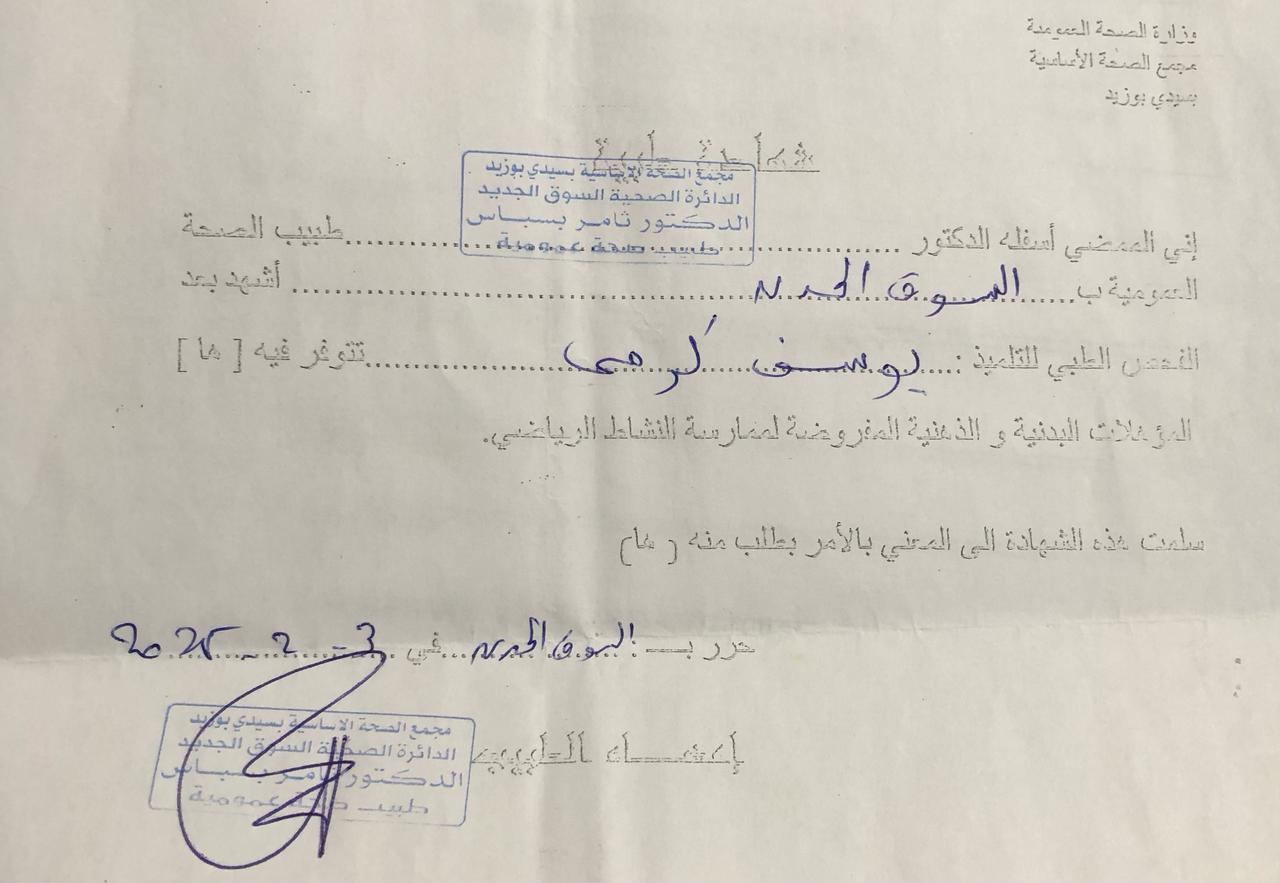 وزارة الصحة العمومية
مجمع الصحة الأساسية
بسيدي بوزيد
شهادة طبية
مجمع الصحة الاساسية بسيدي بوزيد
الدائرة الصحية السوق الجديد
الدكتور ثامر بسباس
طبيب صحة عمومية
إني الممضي أسفله الدكتور ........................ طبيب الصحة
العمومية ب...... السوق الجديد ........................ أشهد بعد
الفحص الطبي للتلميذ :..... يوسف كرمي ..................تتوفر فيه [ ها ]
المؤهلات البدنية و الذهنية المفروضة لممارسة النشاط الرياضي.
سلمت هذه الشهادة الى المعني بالأمر بطلب منه ( ها)
حرر بـ : السوق الجديد ...في 3 - 2 - 2025
إمضاء الطبيب
مجمع الصحة الاساسية بسيدي بوزيد
الدائرة الصحية السوق الجديد
الدكتور ثامر بسباس
طبيب صحة عمومية